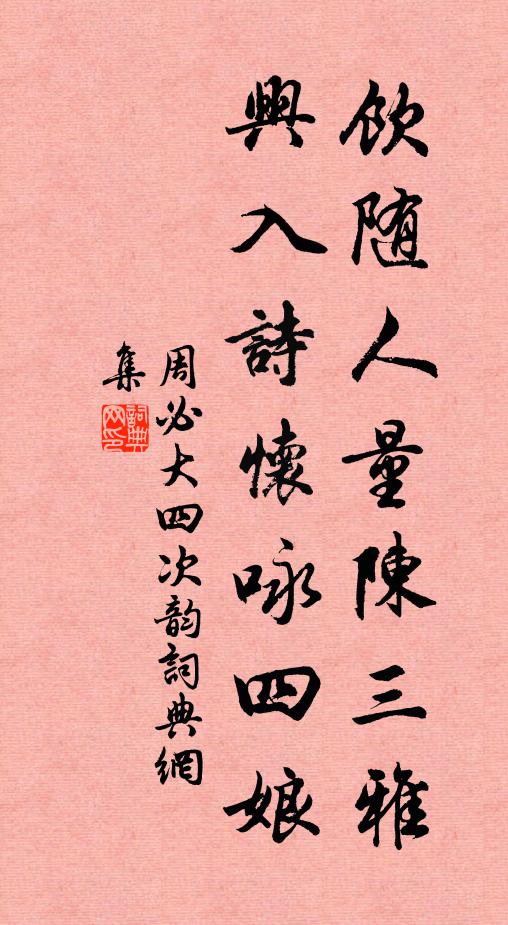 飲随人量陳三雅
興入詩懷咏四娘
周必大四次韵詞典網
集
詞典网印